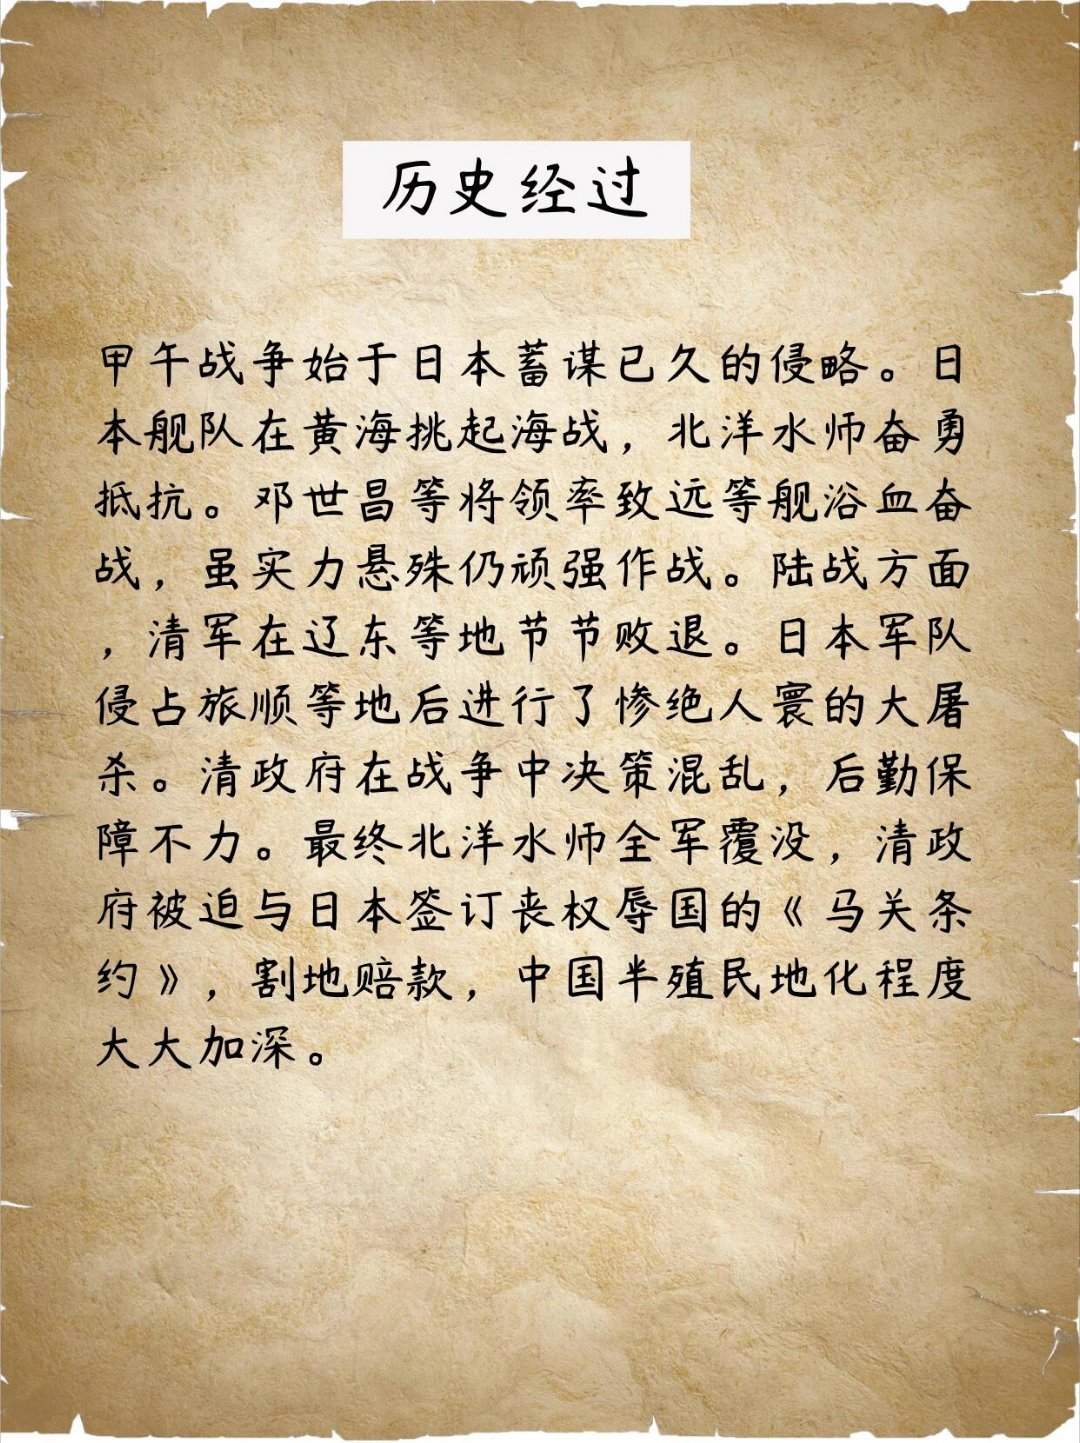 历史经过
甲午战争始于日本蓄谋已久的侵略。日
本舰队在黄海挑起海战，北洋水师奋勇
抵抗。邓世昌等将领率致远等舰浴血奋
战，虽实力悬殊仍顽强作战。陆战方面
，清军在辽东等地节节败退。日本军队
侵占旅顺等地后进行了惨绝人寰的大屠
杀。清政府在战争中决策混乱，后勤保
障不力。最终北洋水师全军覆没，清政
府被迫与日本签订丧权辱国的《马关条
约》，割地赔款，中国半殖民地化程度
大大加深。